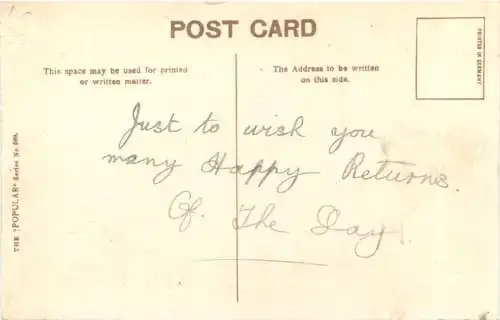 POST CARD
This space may be used for printed
or written matter.
The Address to be written
on this side.
PRINTED IN GERMANY
THE "POPULAR" Series No
Just to wish you
many Happy Returns.
Of. The Day.